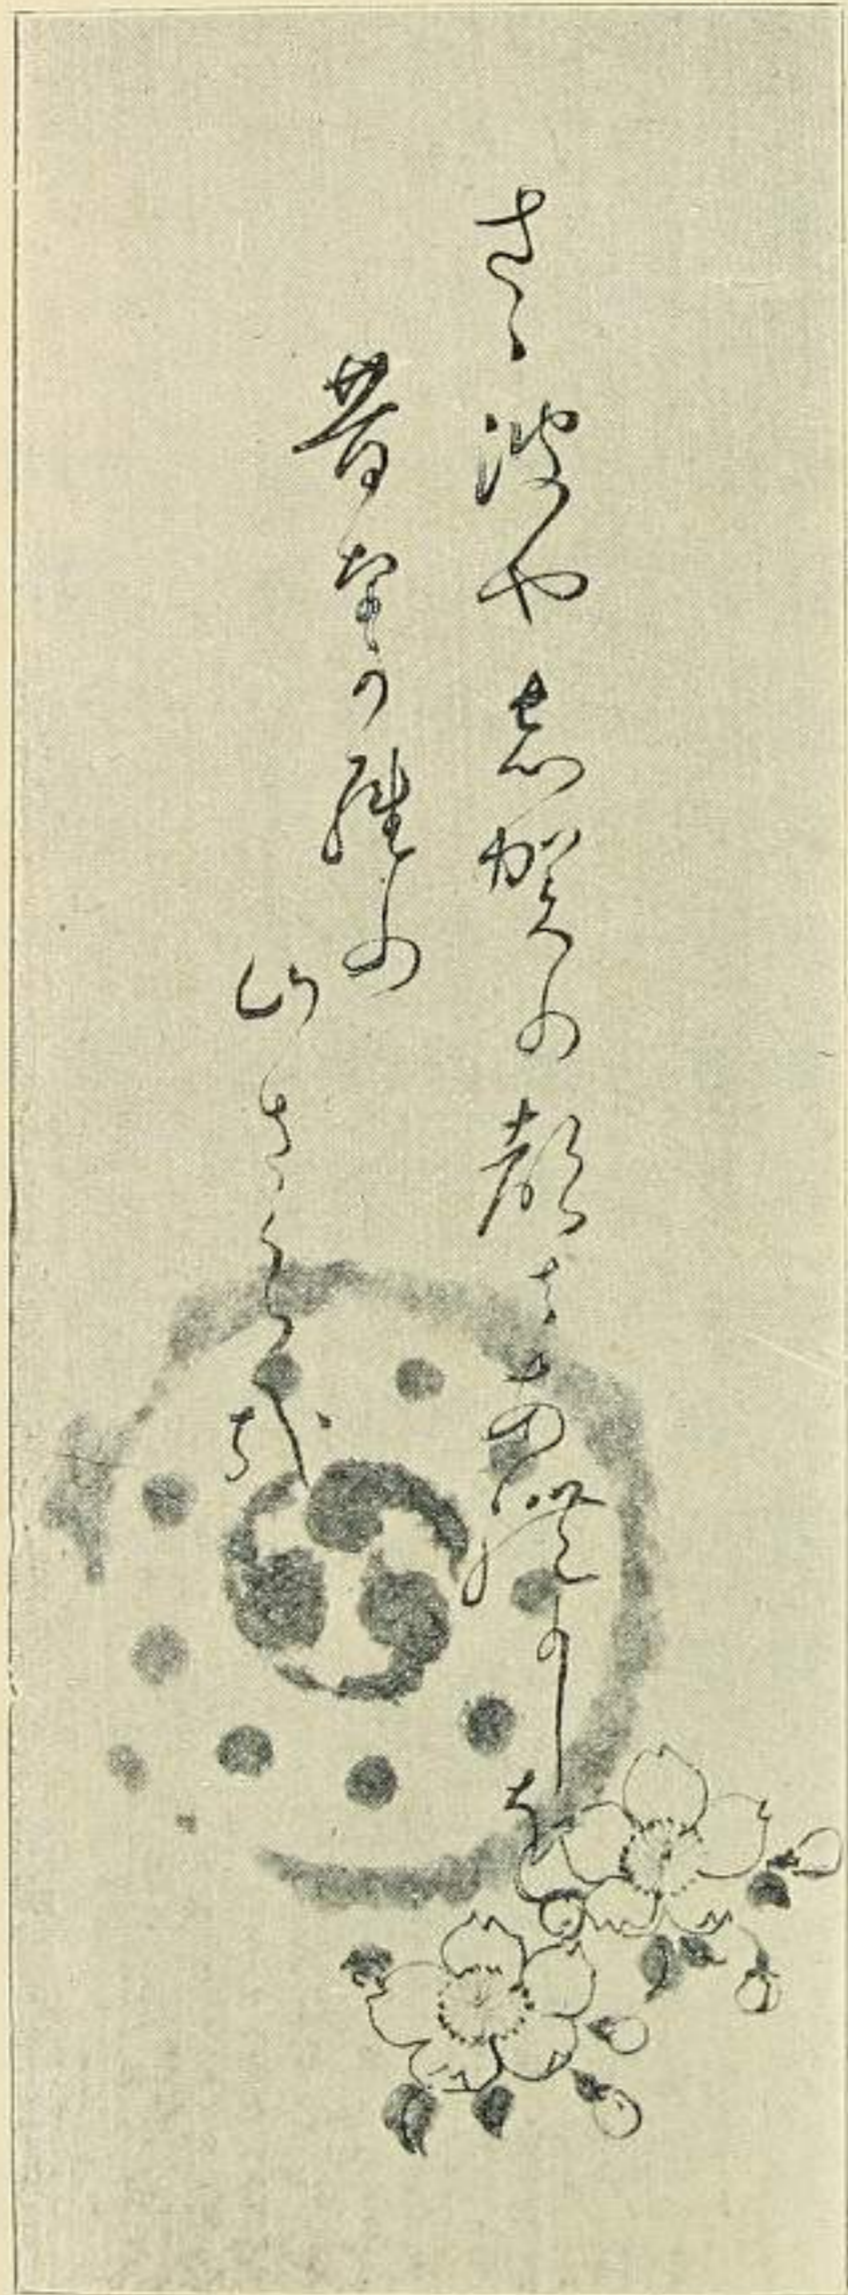 さゝ波や志賀の都はあれにしを
昔なからの
山さくら哉